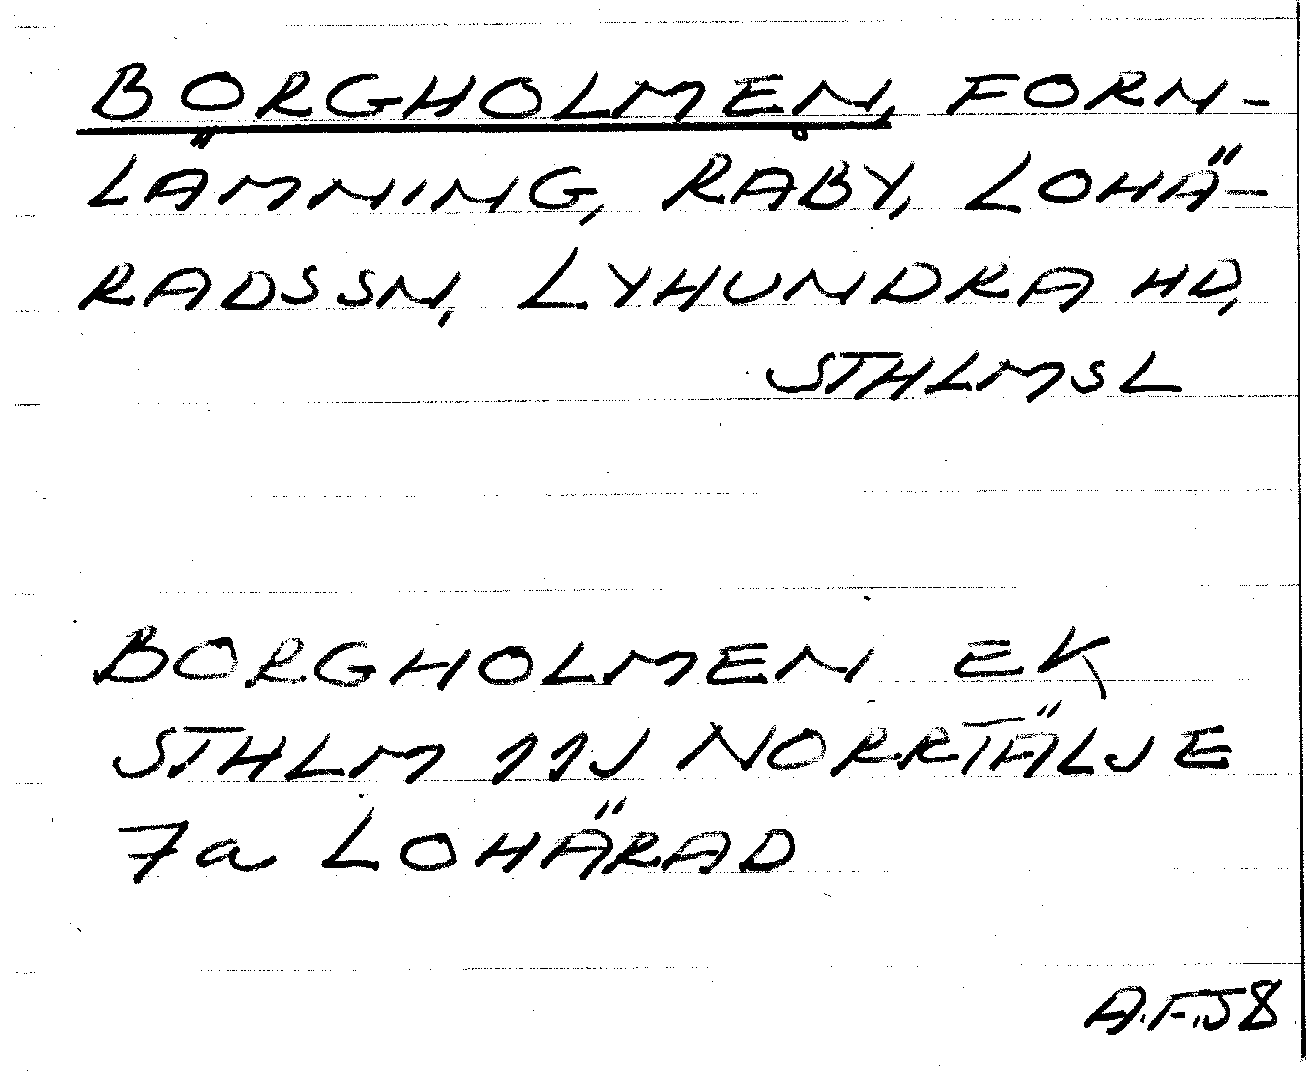 BORGHOLMEN, FORN-
LÄMNING, RÅBY, LOHÄ-
RADSSN, LYHUNDRA HD,
STHLMSL
BORGHOLMEN EK
STHLM 11J NORRTÄLJE
7a LOHÄRAD
A.F.58